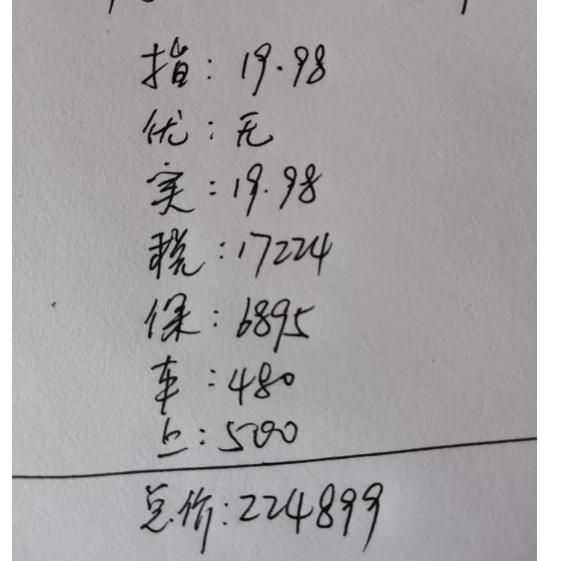 指: 19.98
优: 无
实: 19.98
税: 17224
保: 6895
车: 480
上: 500
总价: 224899